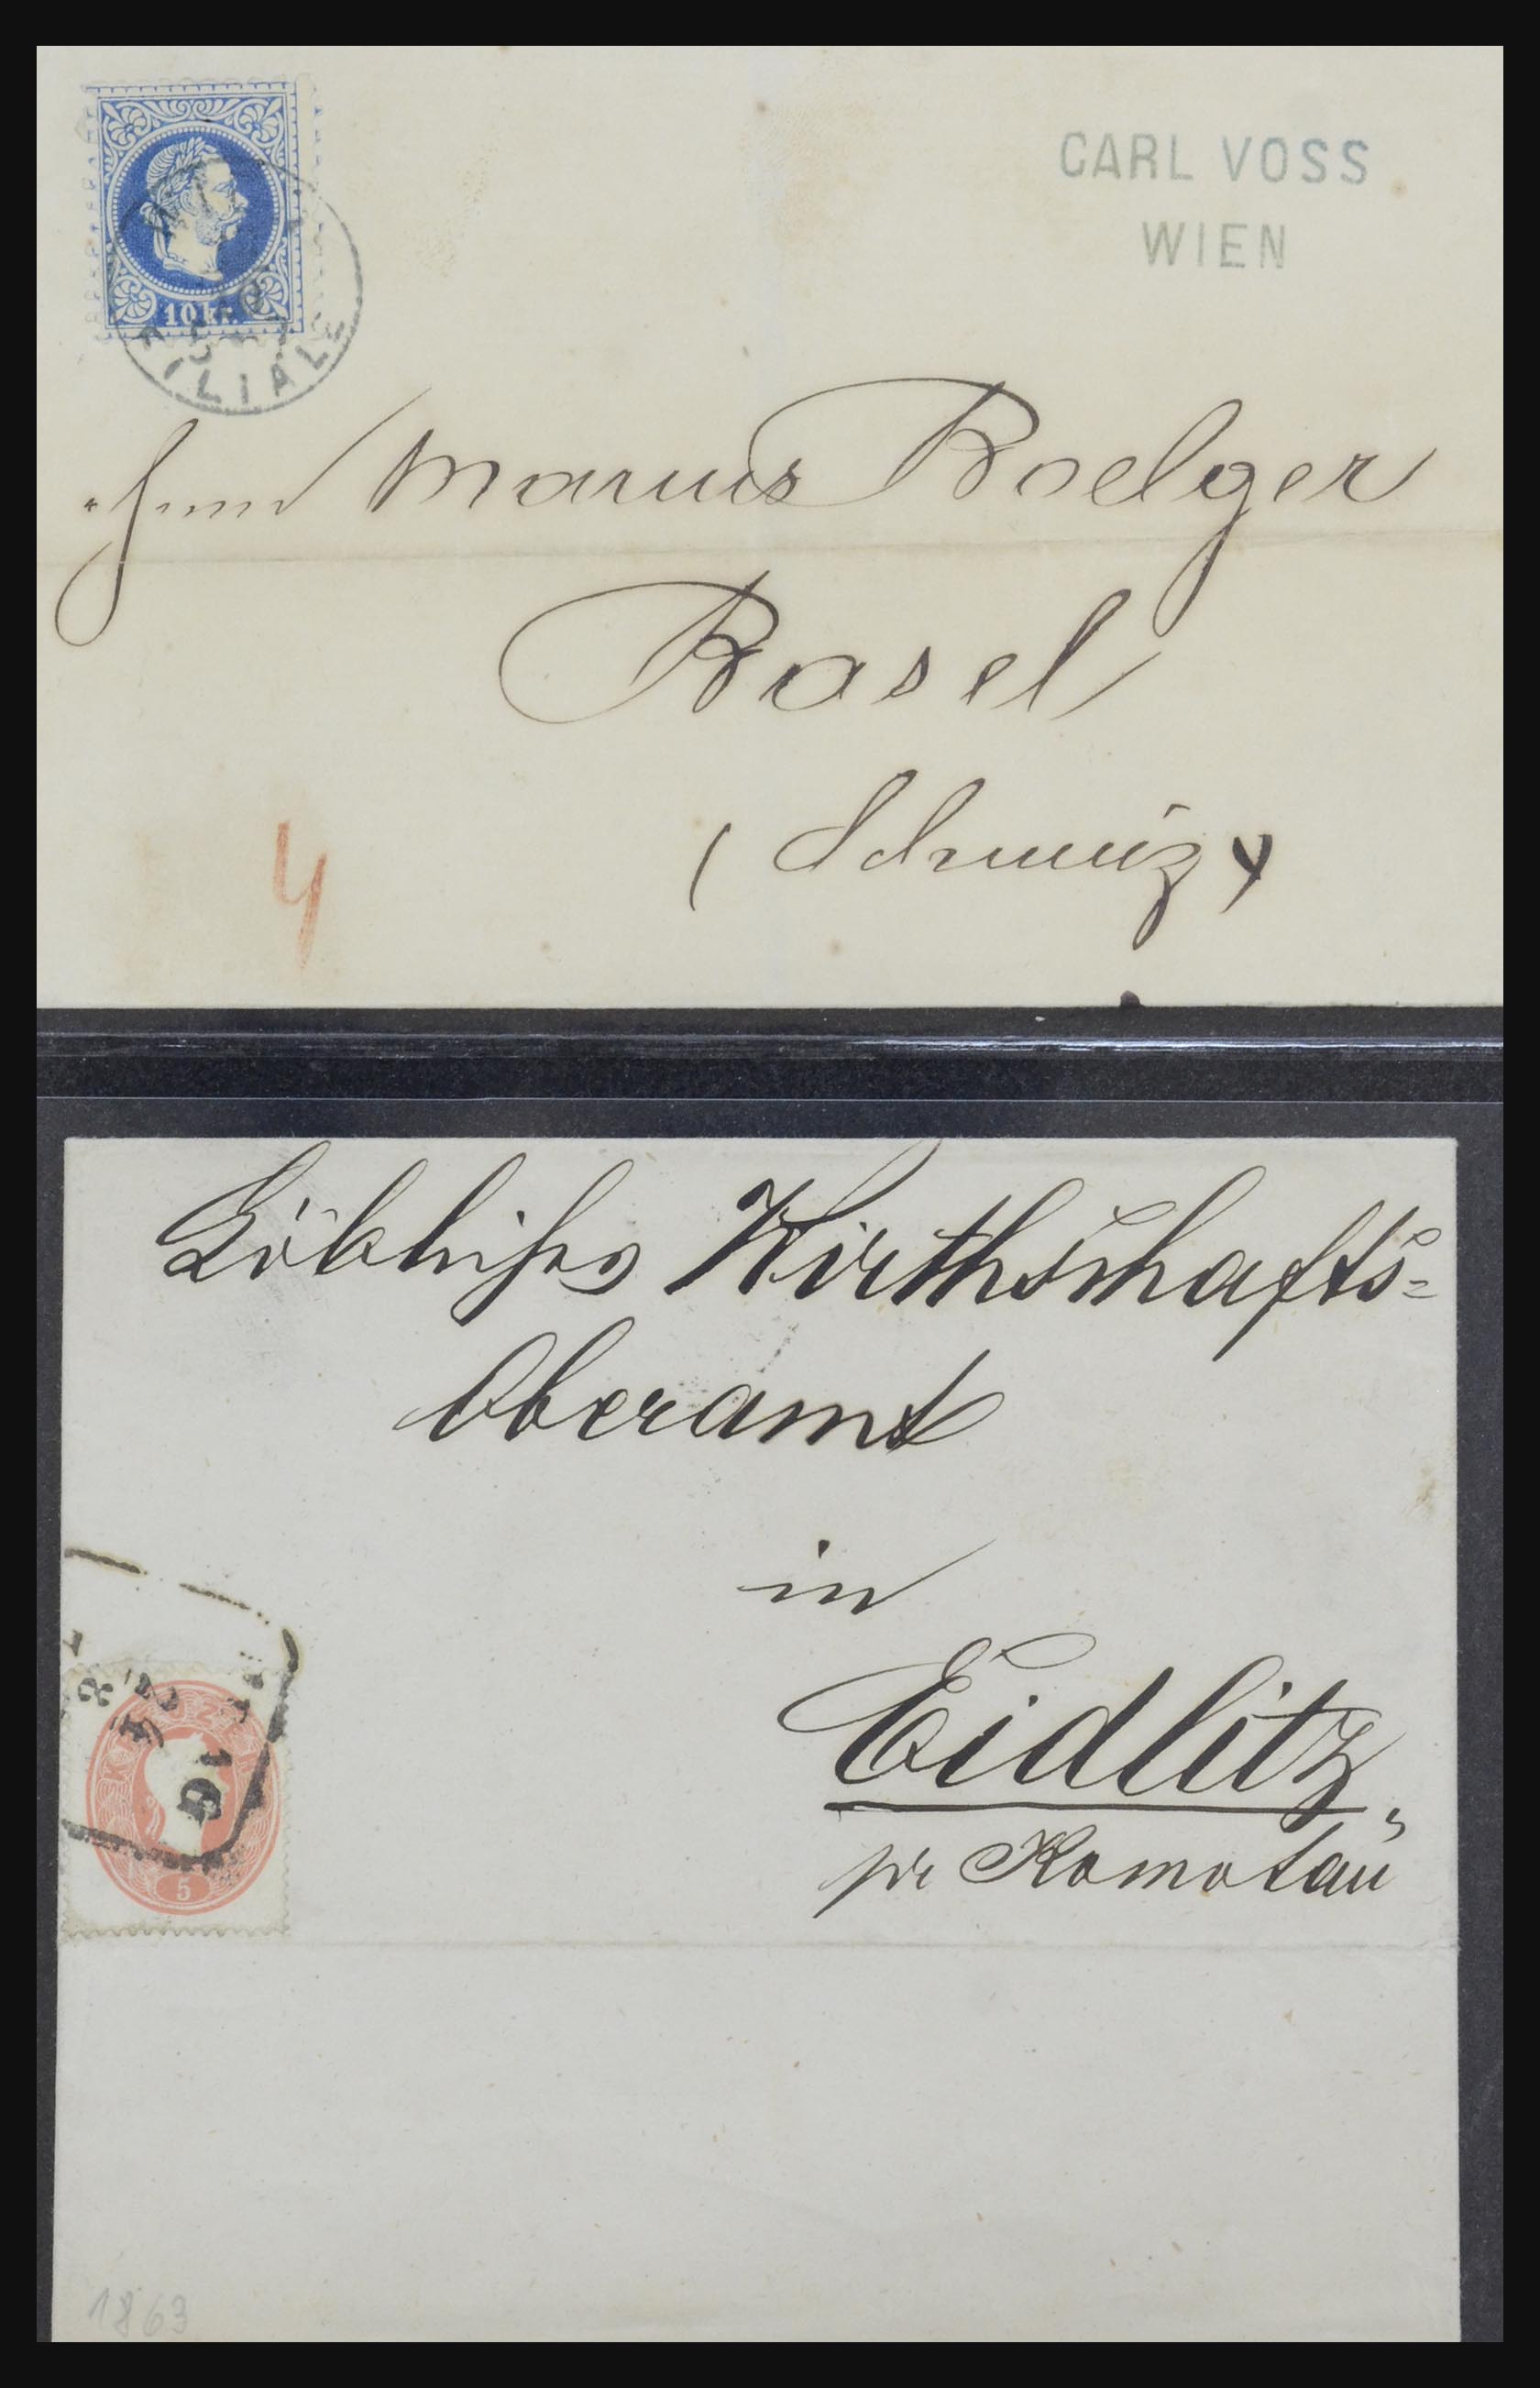 CARL VOSS
WIEN
10 kr.
FILIALE
Herrn Marius Boelger
Basel
(Schweiz)
4
Löbliches Wirthschafts=
Oberamt
in
Eidlitz,
pr Komotau
5
1863